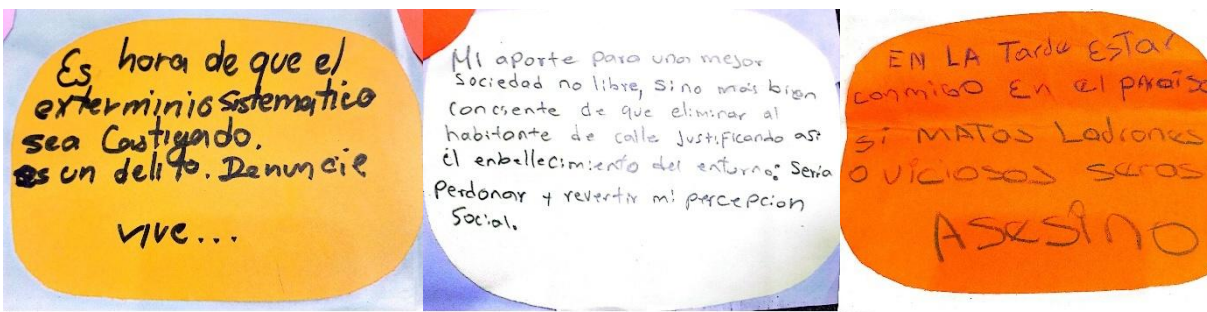 Es hora de que el
exterminio sistematico
sea Castigado.
es un delito. Denuncie
vive...
Mi aporte para una mejor
Sociedad no libre, sino más bien
conciente de que eliminar al
habitante de calle Justificando así
él enbellecimiento del entorno: Seria
Perdonar y revertir mi percepcion
Social.
EN LA Tarde ESTa
conmigo En el paraiso
si MATOS Ladrones
o viciosos seros
Asesino